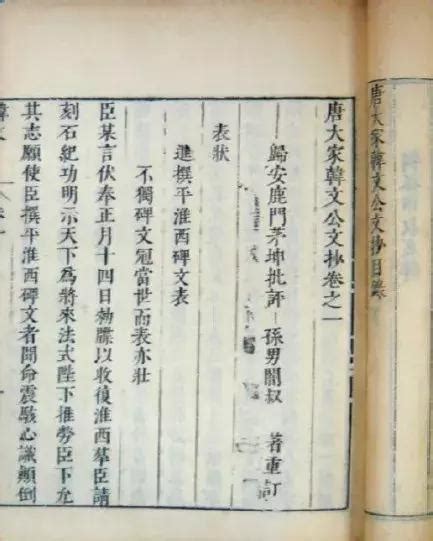 唐大家韓文公文抄目錄
唐大家韓文公文抄卷之一
歸安鹿門茅坤批評 孫男闇叔 著重訂
表狀
進撰平淮西碑文表
不獨碑文冠當世而表亦壯
臣某言伏奉正月十四日勑牒以收復淮西羣臣請
刻石紀功明示天下為將來法式陛下推勞臣下允
其志願使臣撰平淮西碑文者聞命震駭心識顛倒